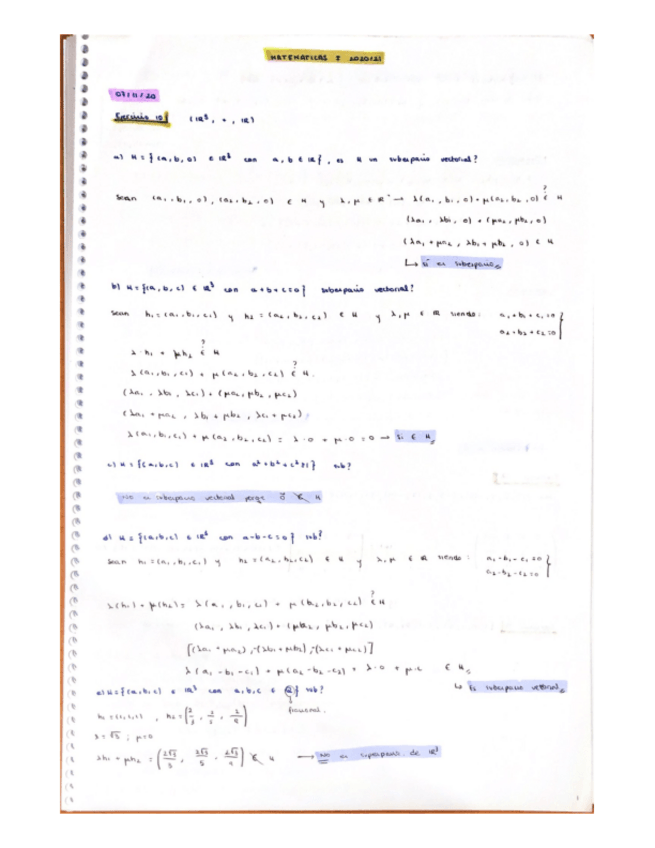 MATEMATICAS I 2020/21
Ejercicio 10 (IR³, +, IR)
a) H = {(a, b, 0) ∈ IR³ con a, b ∈ IR}, es H un subespacio vectorial?
Sean (a₁, b₁, 0), (a₂, b₂, 0) ∈ H y λ, μ ∈ IR → λ(a₁, b₁, 0) + μ(a₂, b₂, 0) ∈? H
(λa₁, λb₁, 0) + (μa₂, μb₂, 0)
(λa₁ + μa₂, λb₁ + μb₂, 0) ∈ H
↳ si es subespacio.
b) H = {(a, b, c) ∈ IR³ con a+b+c=0} subespacio vectorial?
Sean h₁ = (a₁, b₁, c₁) y h₂ = (a₂, b₂, c₂) ∈ H y λ, μ ∈ IR siendo: a₁+b₁+c₁=0
a₂+b₂+c₂=0 }
λ·h₁ + μh₂ ∈? H
λ(a₁, b₁, c₁) + μ(a₂, b₂, c₂) ∈? H.
(λa₁, λb₁, λc₁) + (μa₂, μb₂, μc₂)
(λa₁ + μa₂, λb₁ + μb₂, λc₁ + μc₂)
λ(a₁, b₁, c₁) + μ(a₂, b₂, c₂) = λ·0 + μ·0 = 0 → Si ∈ H
c) H = {(a, b, c) ∈ IR³ con sub?
no es subespacio vectorial porque 0 ∉ H
d) H = {(a, b, c) ∈ IR³ con a-b-c=0} sub?
Sean h₁ = (a₁, b₁, c₁) y h₂ = (a₂, b₂, c₂) ∈ H y λ, μ ∈ IR siendo: a₁-b₁-c₁=0
a₂-b₂-c₂=0 }
λ(h₁) + μ(h₂) = λ(a₁, b₁, c₁) + μ(a₂, b₂, c₂) ∈? H
(λa₁, λb₁, λc₁) + (μa₂, μb₂, μc₂)
[(λa₁ + μa₂), -(λb₁ + μb₂), -(λc₁ + μc₂)]
λ(a₁-b₁-c₁) + μ(a₂-b₂-c₂) = λ·0 + μ· ∈ H
↳ Es subespacio vectorial.
e) H = {(a, b, c) ∈ IR³ con a, b, c ∈ Q} sub?
λ = √3 ; μ=0
λh₁ + μh₂ = ∉ H → no es de IR³